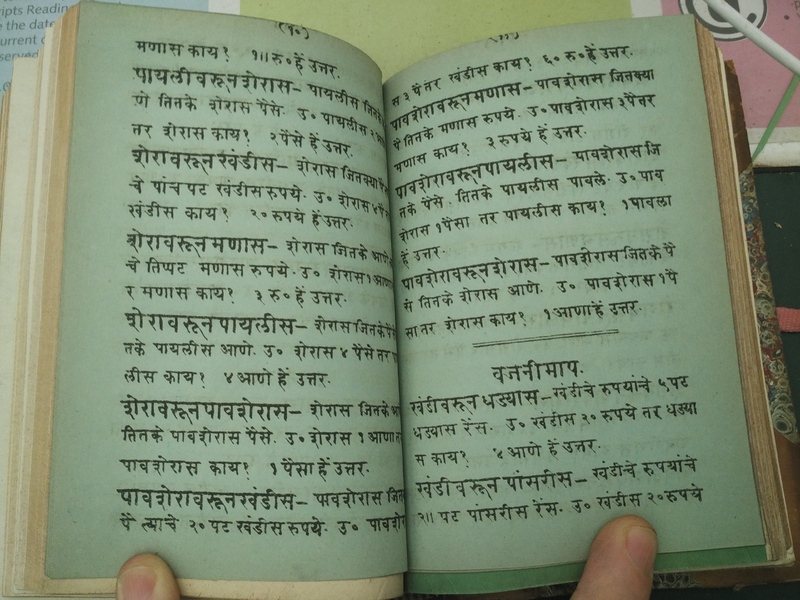 ripts Reading
e the date
urrent c
served
(१०)
मणास काय? १॥ रु० हें उत्तर.
पायलीवरून शेरास- पायलीस जितके
णे तितके शेरास पैसे. उ० पायलीस २
तर शेरास काय? २ पैसे हें उत्तर.
शेरावरून खंडीस- शेरास जितक्या पै
चे पांच पट खंडीस रुपये. उ० शेरास ४ पै
खंडीस काय? २० रुपये हें उत्तर.
शेरावरून मणास- शेरास जितके आणे
चे तिप्पट मणास रुपये. उ० शेरास १ आणा
र मणास काय? ३ रु० हें उत्तर.
शेरावरून पायलीस- शेरास जितके पैसे
तके पायलीस आणे. उ० शेरास ४ पैसे तर पा
लीस काय? ४ आणे हें उत्तर.
शेरावरून पावशेरास- शेरास जितके आ
तितके पावशेरास पैसे. उ० शेरास १ आणा तर
पावशेरास काय? १ पैसा हें उत्तर.
पावशेरावरून खंडीस- पावशेरास जित
पै त्याचे २० पट खंडीस रुपये. उ० पावशेरा
(११)
स ३ पै तर खंडीस काय? ६० रु० हें उत्तर.
पावशेरावरून मणास- पावशेरास जितक्या
पै तितके मणास रुपये. उ० पावशेरास ३ पै तर
मणास काय? ३ रुपये हें उत्तर.
पावशेरावरून पायलीस- पावशेरास जि
तके पैसे तितके पायलीस पावले. उ० पाव
शेरास १ पैसा तर पायलीस काय? १ पावला
हें उत्तर.
पावशेरावरून शेरास- पावशेरास जितके पै
से तितके शेरास आणे. उ० पावशेरास १ पै
सा तर शेरास काय? १ आणा हें उत्तर.
वजनीमाप.
खंडीवरून धडयास- खंडीचे रुपयांचे ५ पट
धडयास रेंस. उ० खंडीस २० रुपये तर धडया
स काय? ४ आणे हें उत्तर.
खंडीवरून पांसरीस- खंडीचे रुपयांचे
२॥ पट पांसरीस रेंस. उ० खंडीस २० रुपये